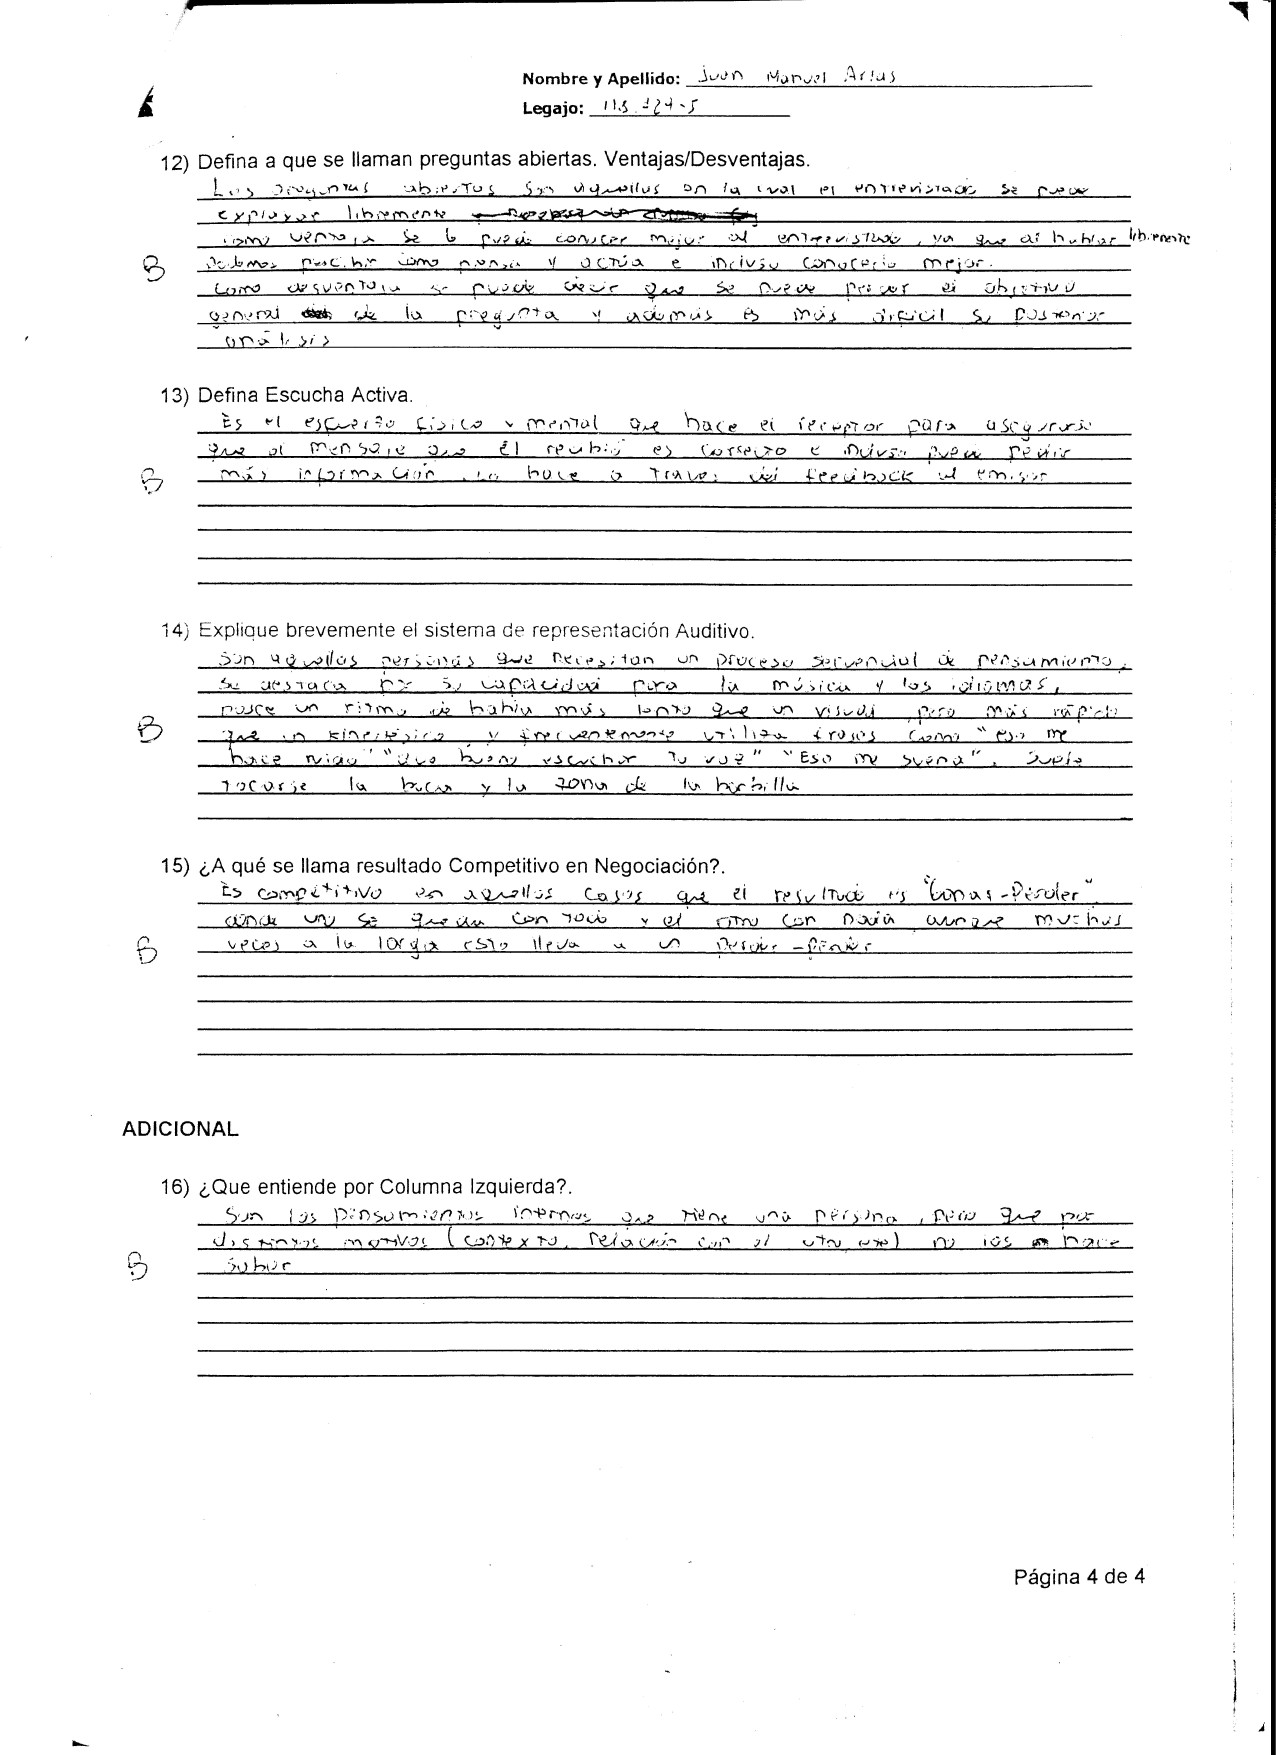 Nombre y Apellido: Juan Manuel Arias
Legajo: 118.124-5
12) Defina a que se llaman preguntas abiertas. Ventajas/Desventajas.
Las preguntas abiertas son aquellas en la cual el entrevistado se puede
explayar libremente
como ventaja se lo puede conocer mejor al entrevistado, ya que al hablar libremente
B podemos percibir como piensa y actúa e incluso conocerlo mejor.
como desventaja se puede decir que se puede perder el objetivo
general de la pregunta y además es más difícil su posterior
análisis
13) Defina Escucha Activa.
Es el esfuerzo físico y mental que hace el receptor para asegurarse
que el mensaje que él recibió es correcto e incluso puede pedir
B más información. Lo hace a través del feedback al emisor
14) Explique brevemente el sistema de representación Auditivo.
Son aquellas personas que necesitan un proceso secuencial de pensamiento.
Se destaca por su capacidad para la música y los idiomas,
posee un ritmo de habla más lento que un visual pero más rápido
B que un kinestésico y frecuentemente utiliza frases como "eso me
hace ruido" "que bueno escuchar tu voz" "Eso me suena". Suele
tocarse la boca y la zona de la barbilla
15) ¿A qué se llama resultado Competitivo en Negociación?.
Es competitivo en aquellos casos que el resultado es "Ganas-Perder"
donde uno se queda con todo y el otro con nada aunque muchas
B veces a la larga esto lleva a un Perder-Perder
ADICIONAL
16) ¿Que entiende por Columna Izquierda?.
Son los pensamientos internos que tiene una persona, pero que por
distintos motivos (contexto, relación con el otro, etc) no los hace
B saber
Página 4 de 4